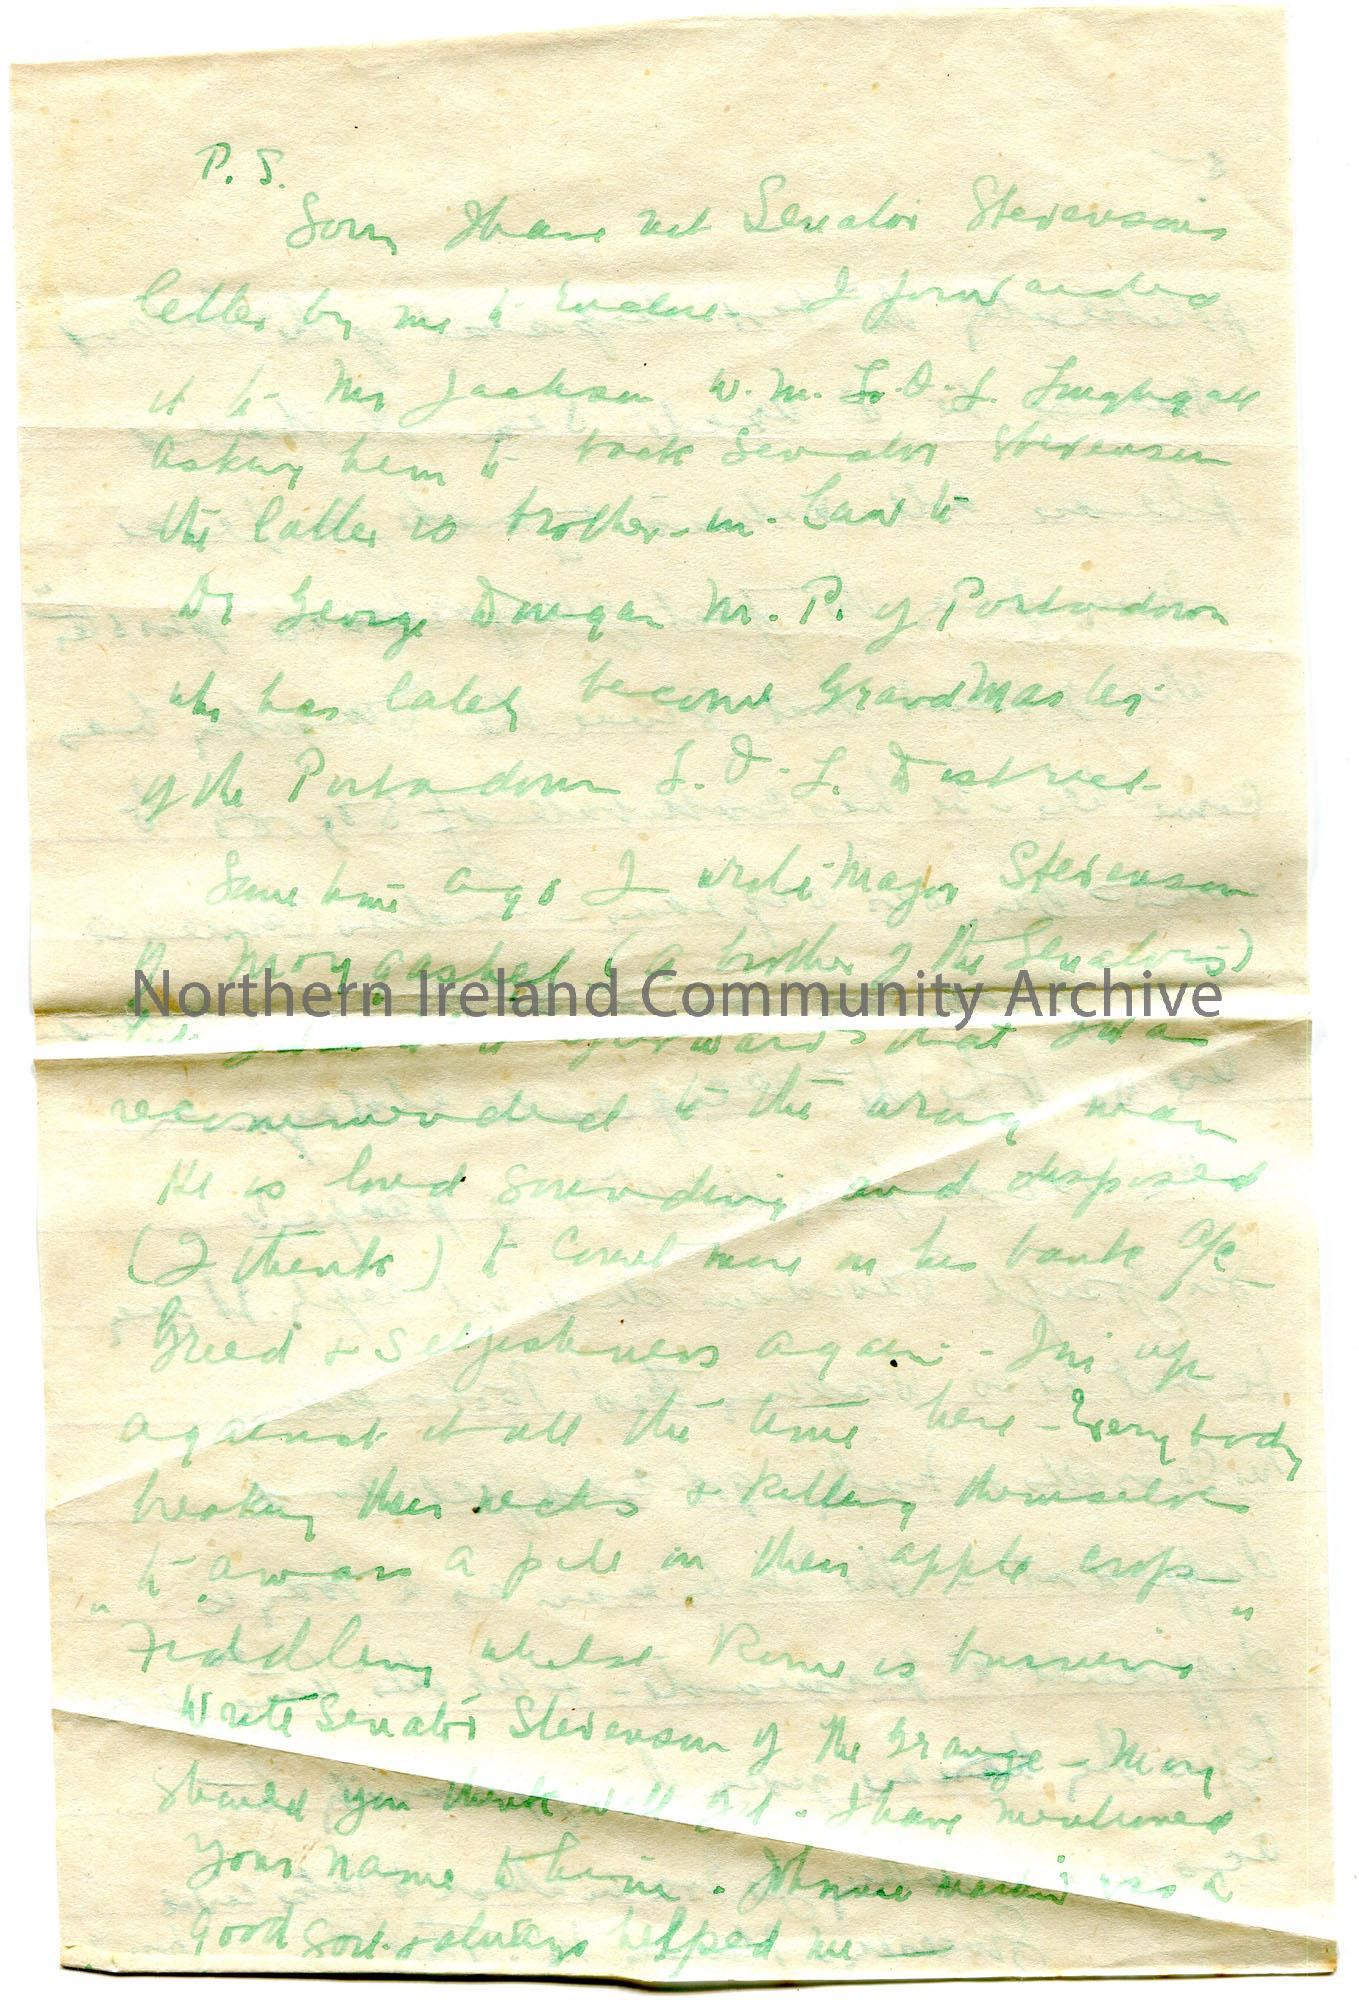 P. S.
Sorry I have not Senator Stevenson's
letter by me to enclose. I forwarded
it to Mr Jackson W. M. L. O. L. Loughgall
asking him to back Senator Stevenson
the latter is brother-in-law to
Dr George Dougan M. P. of Portadown
who has lately become Grand Master
of the Portadown L. O. L. District
Some time ago I wrote Major Stevenson
Moygashel (a brother of the Senators)
Northern Ireland Community Archive
but afterwards that I was
recommended to the wrong man
He is loud sounding and disposed
(I think) to count more on his bank a/c
Greed & Selfishness again - I'm up
against it all the time here - Everybody
breaking their necks & killing themselves
to amass a pile in their apple crops
"Fiddling whilst Rome is burning"
Write Senator Stevenson of the Grange - Moy
should you think well of it. I have mentioned
your name to him. Johnnie Martin was a
good sort & always helped me